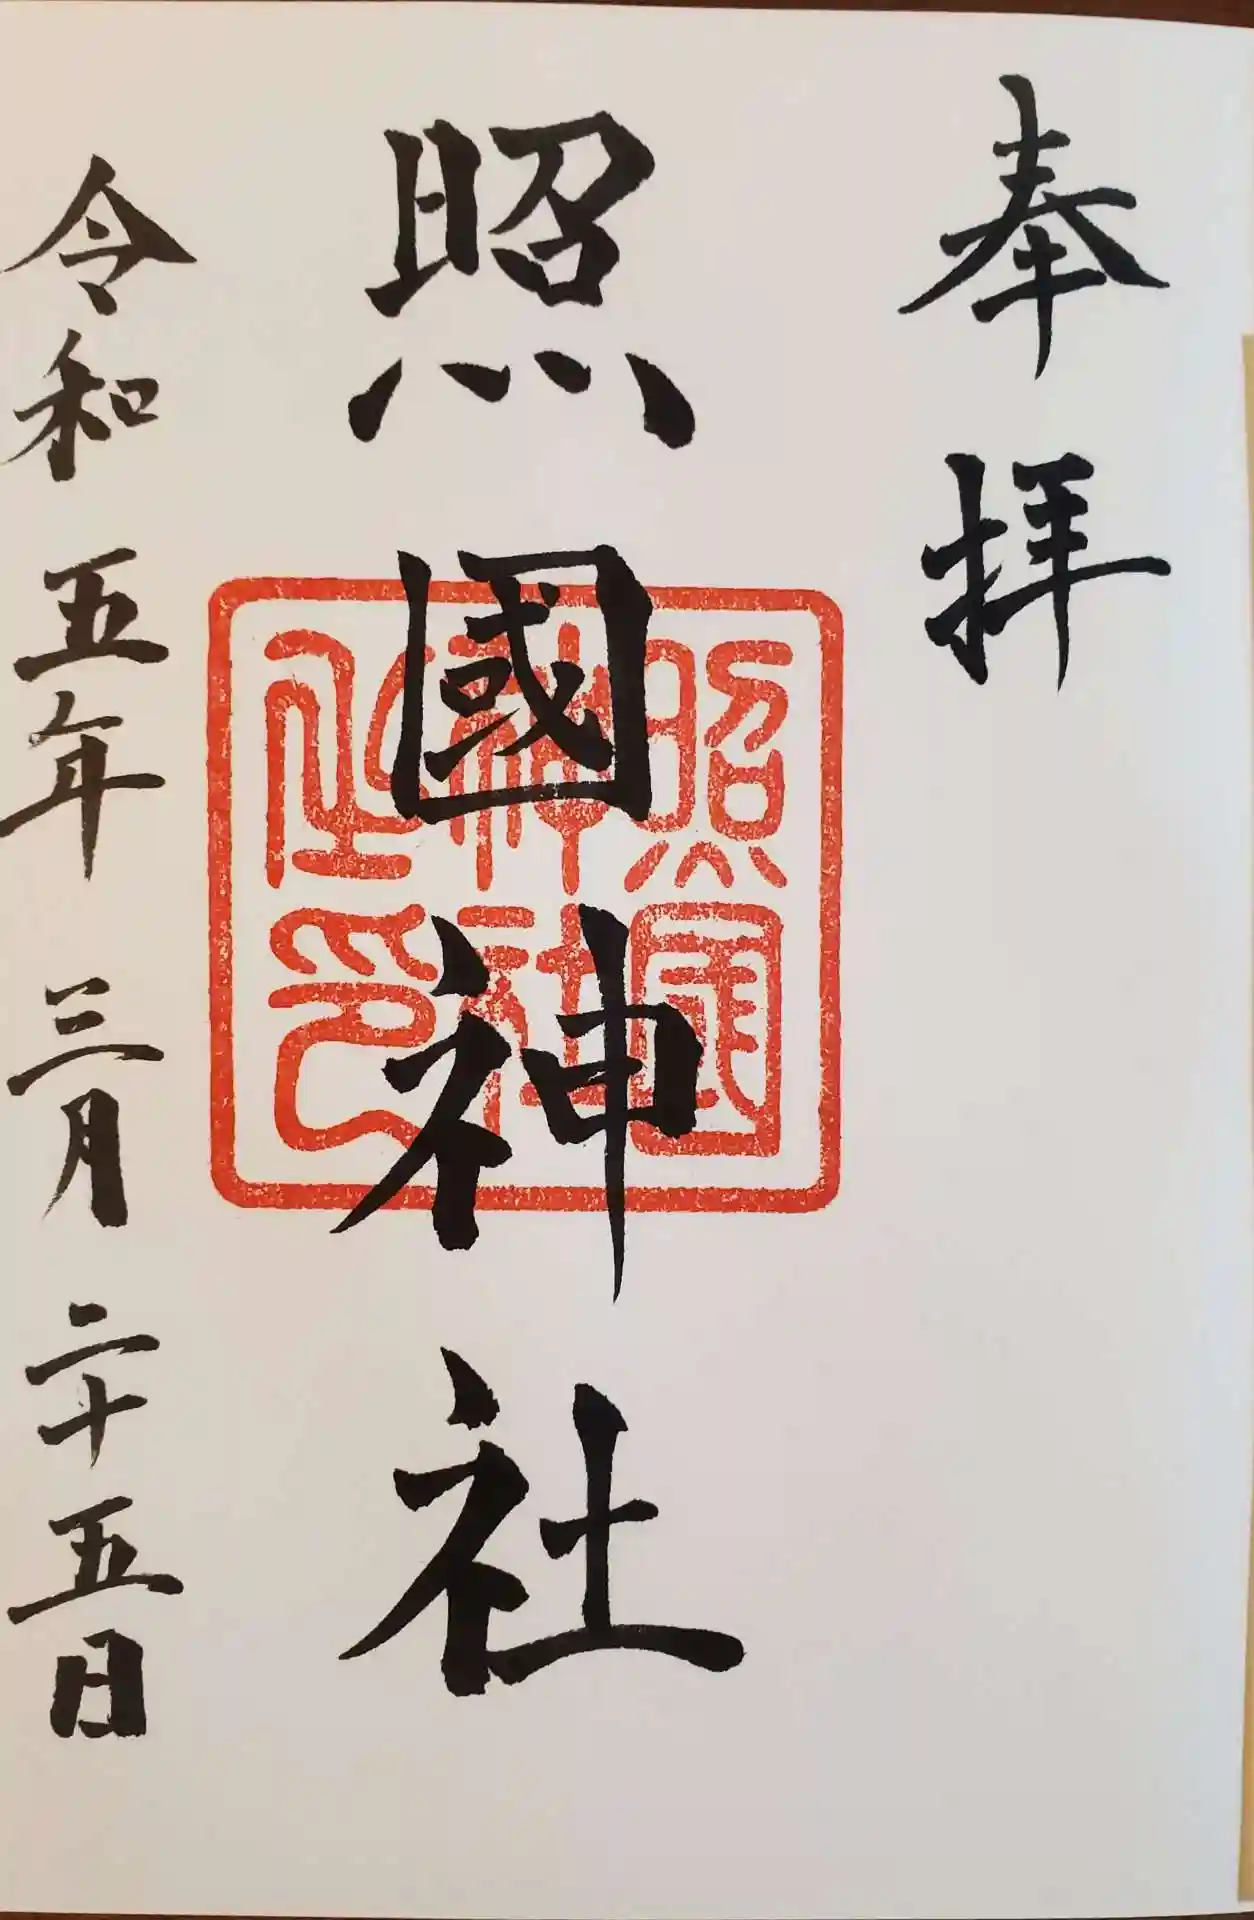 奉拝
照國神社
照国神社之印
令和五年三月二十五日